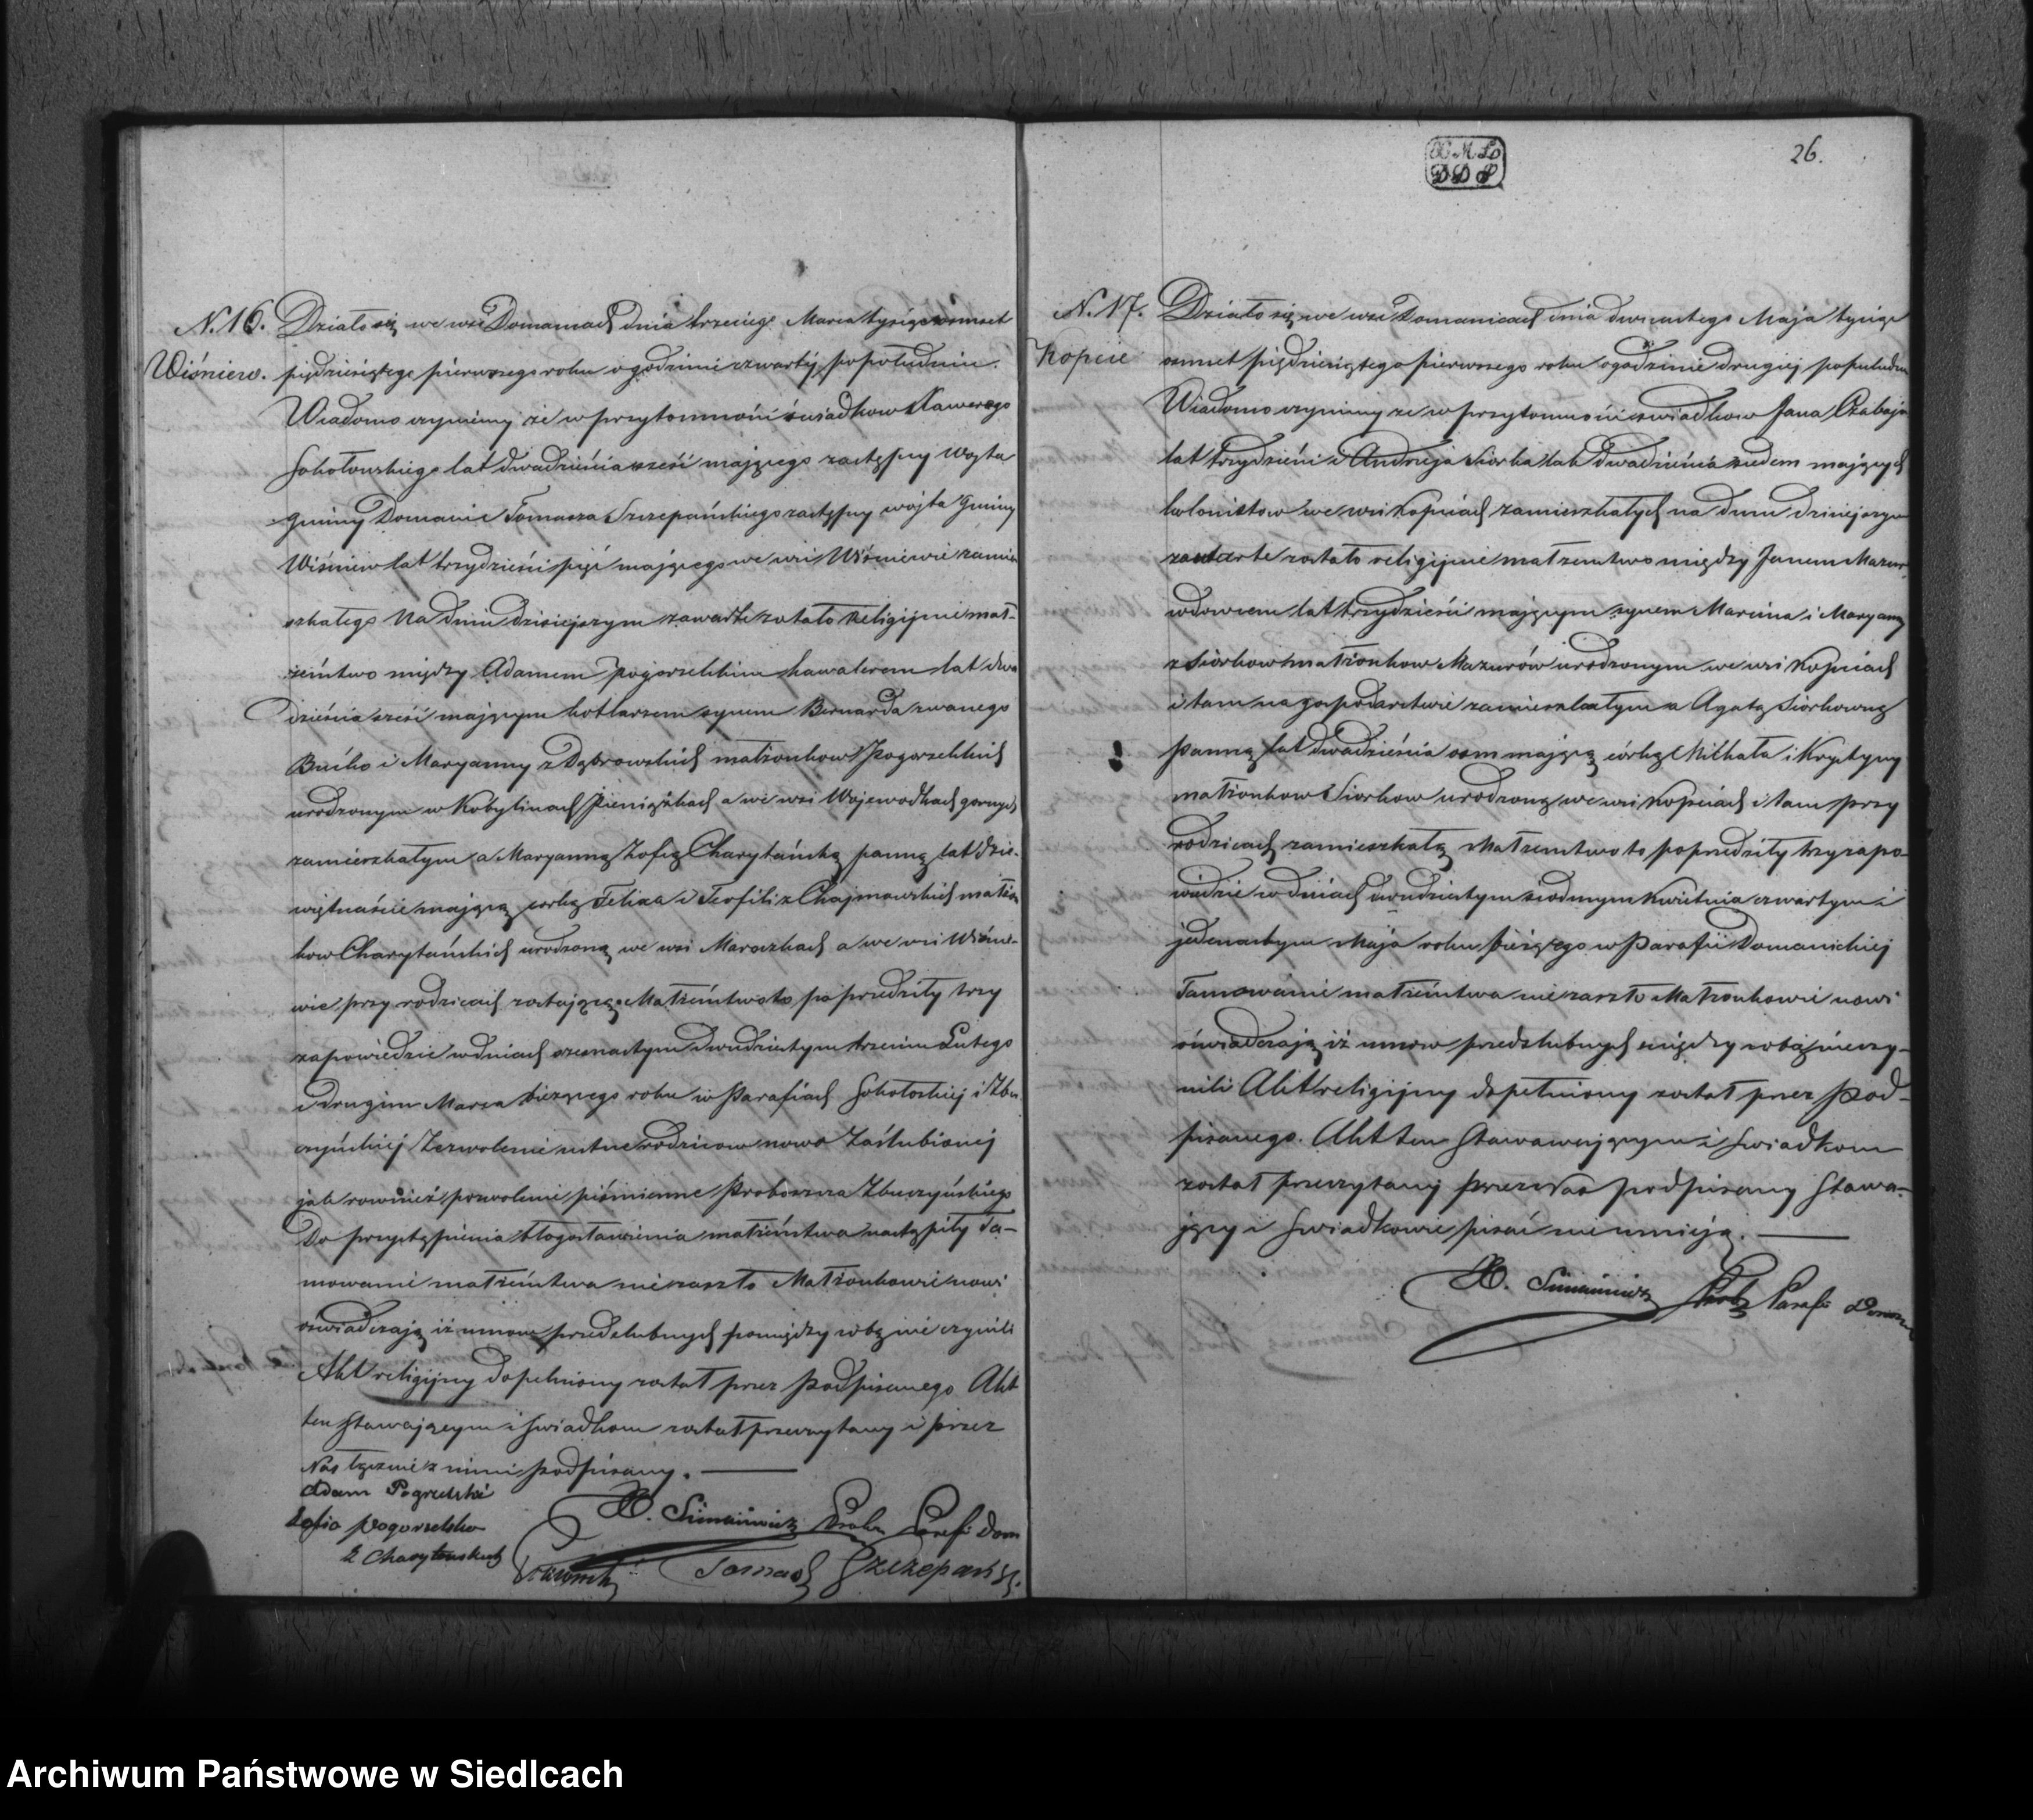 N. 16.
Wiśniew.
Działo się we wsi Domanicach dnia trzeciego Marca tysiąc ośmset
pięćdziesiątego pierwszego roku o godzinie czwartej popołudniu.
Wiadomo czynimy że w przytomności świadkow Xawerego
Sokołowskiego lat dwadzieścia sześć mającego zastępcy Wojta
Gminy Domanice Tomasza Szczepańskiego zastępcy wojta Gminy
Wiśniew lat trzydzieści pięć mającego we wsi Wiśniewie zamie
szkałego Na dniu dzisiejszym zawarte zostało Religijne mał-
żeństwo między Adamem Pogorzelskim kawalerem lat dwa
dzieścia sześć mającym kotlarzem synem Bernarda zwanego
i Maryanny z Dąbrowskich małżonkow Pogorzelskich
urodzonym w Kobylinach Pieniążkach a we wsi Wojewodkach gornych
zamieszkałym a Maryanną Zofią Charytańską panną lat dzie-
więtnaście mającą corką Felixa i Teofili z Chojnowskich małżon
kow Charytańskich urodzoną we wsi Mroczkach a we wsi Wiśnie-
wie przy rodzicach zostającą. Małżeństwo to poprzedziły trzy
zapowiedzie w dniach szesnastym dwudziestym trzecim Lutego
i drugim Marca bieżącego roku w Parafiach Sokołoskiej i Zbu
czyńskiej Zezwolenie ustne rodzicow nowo Zaślubionej
jak rownież pozwolenie piśmienne Proboszcza Zbuczyńskiego
Do przystąpienia błogosławienia małżeństwa nastąpiły Ta-
mowanie małżeństwa nie zaszło Małżonkowie nowi
oświadczają iż umow przedślubnych pomiędzy sobą nie czynili
Akt religijny dopełniony został przez Podpisanego Akt
ten Stawającym i Swiadkom został przeczytany i przez
Nas łącznie z nimi podpisany.
Adam Pogrzelski
Zofia Pogorzelska
z Charytanskich
X. Simaniewicz Prob. Parafii Dom
Tomasz Szczepański.
X M L
D D S
26.
N. 17.
Kopcie
Działo się we wsi Domanicach dnia dwunastego Maja tysiąc
osmset pięćdziesiątego pierwszego roku o godzinie drugiej popołudniu
Wiadomo czynimy że w przytomności świadkow Jana Czabaja
lat trzydzieści i Andrzeja Siorka lat dwadzieścia siedem mających
kolonistow we wsi Kopciach zamieszkałych na dniu dzisiejszym
zawarte zostało religijne małżenstwo między Janem Mazur
wdowcem lat trzydzieści mającym synem Marcina i Maryanny
z Siorkow małżonkow Mazurów urodzonym we wsi Kopciach
i tam na gospodarstwie zamieszkałym a Agatą Siorkowną
panną lat dwadzieścia osm mającą córką Michała i Krystyny
małżonkow Siorkow urodzoną we wsi Kopciach i tam przy
rodzicach zamieszkałą Małżenstwo to poprzedziły trzy zapo-
wiedzie w dniach dwudziestym siodmym Kwietnia czwartym i
jedenastym Maja roku bieżącego w Parafii Domanickiej
Tamowanie małżeństwa nie zaszło Małżonkowie nowi
oświadczają iż umow przedślubnych między sobą nieczy-
nili Akt religijny dopełniony został przez Pod-
pisanego. Akt ten Stawającym i Swiadkom
został przeczytany przez Nas podpisany Stawa-
jący i Swiadkowie pisać nie umieją.
X. Simaniewicz Prob. Parafii
Archiwum Państwowe w Siedlcach